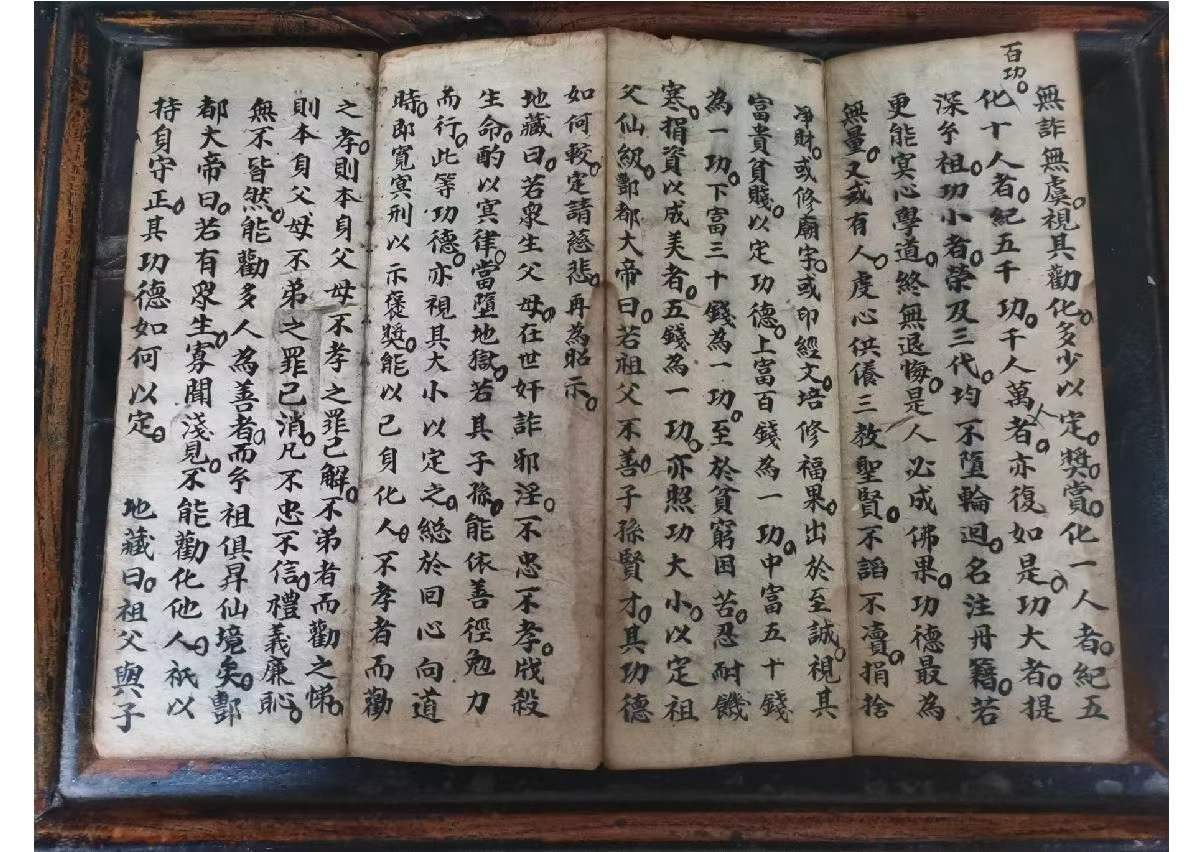 無詐無虞。視其勸化多少以定。獎。賞。化一人者。紀五
百功。
化十人者。紀五千功。千人萬人者。亦復如是。功大者。提
深玄祖。功小者。榮及三代。均不墮輪迴。名注冊籍。若
更能冥心學道。終無退悔。是人必成佛果。功德最為
無量。又或有人。虔心供養三教聖賢。不諂不瀆。捐捨
淨財。或修廟宇。或印經文。培修福果。出於至誠。視其
富貴貧賤。以定功德。上富百錢為一功。中富五十錢
為一功。下富三十錢為一功。至於貧窮困苦。忍耐饑
寒。捐資以成美者。五錢為一功。亦照功大小。以定祖
父仙級。酆都大帝曰。若祖父不善。子孫賢才。其功德
如何較。定請慈悲。再為昭示。
地藏曰。若眾生父母。在世奸詐邪淫。不忠不孝。戕殺
生命。酌以冥律。當墮地獄。若其子孫。能依善徑勉力
而行。此等功德。亦視其大小以定之。總於回心向道
時。即寬冥刑以示褒獎。能以己身化人。不孝者而勸
之孝。則本身父母不孝之罪已解。不弟者而勸之悌。
則本身父母不弟之罪已消。凡不忠不信。禮義廉恥。
無不皆然。能勸多人為善者。而玄祖俱昇仙境矣。酆
都大帝曰。若有眾生。寡聞淺見。不能勸化他人。祇以
持身守正。其功德如何以定。 地藏曰。祖父與子